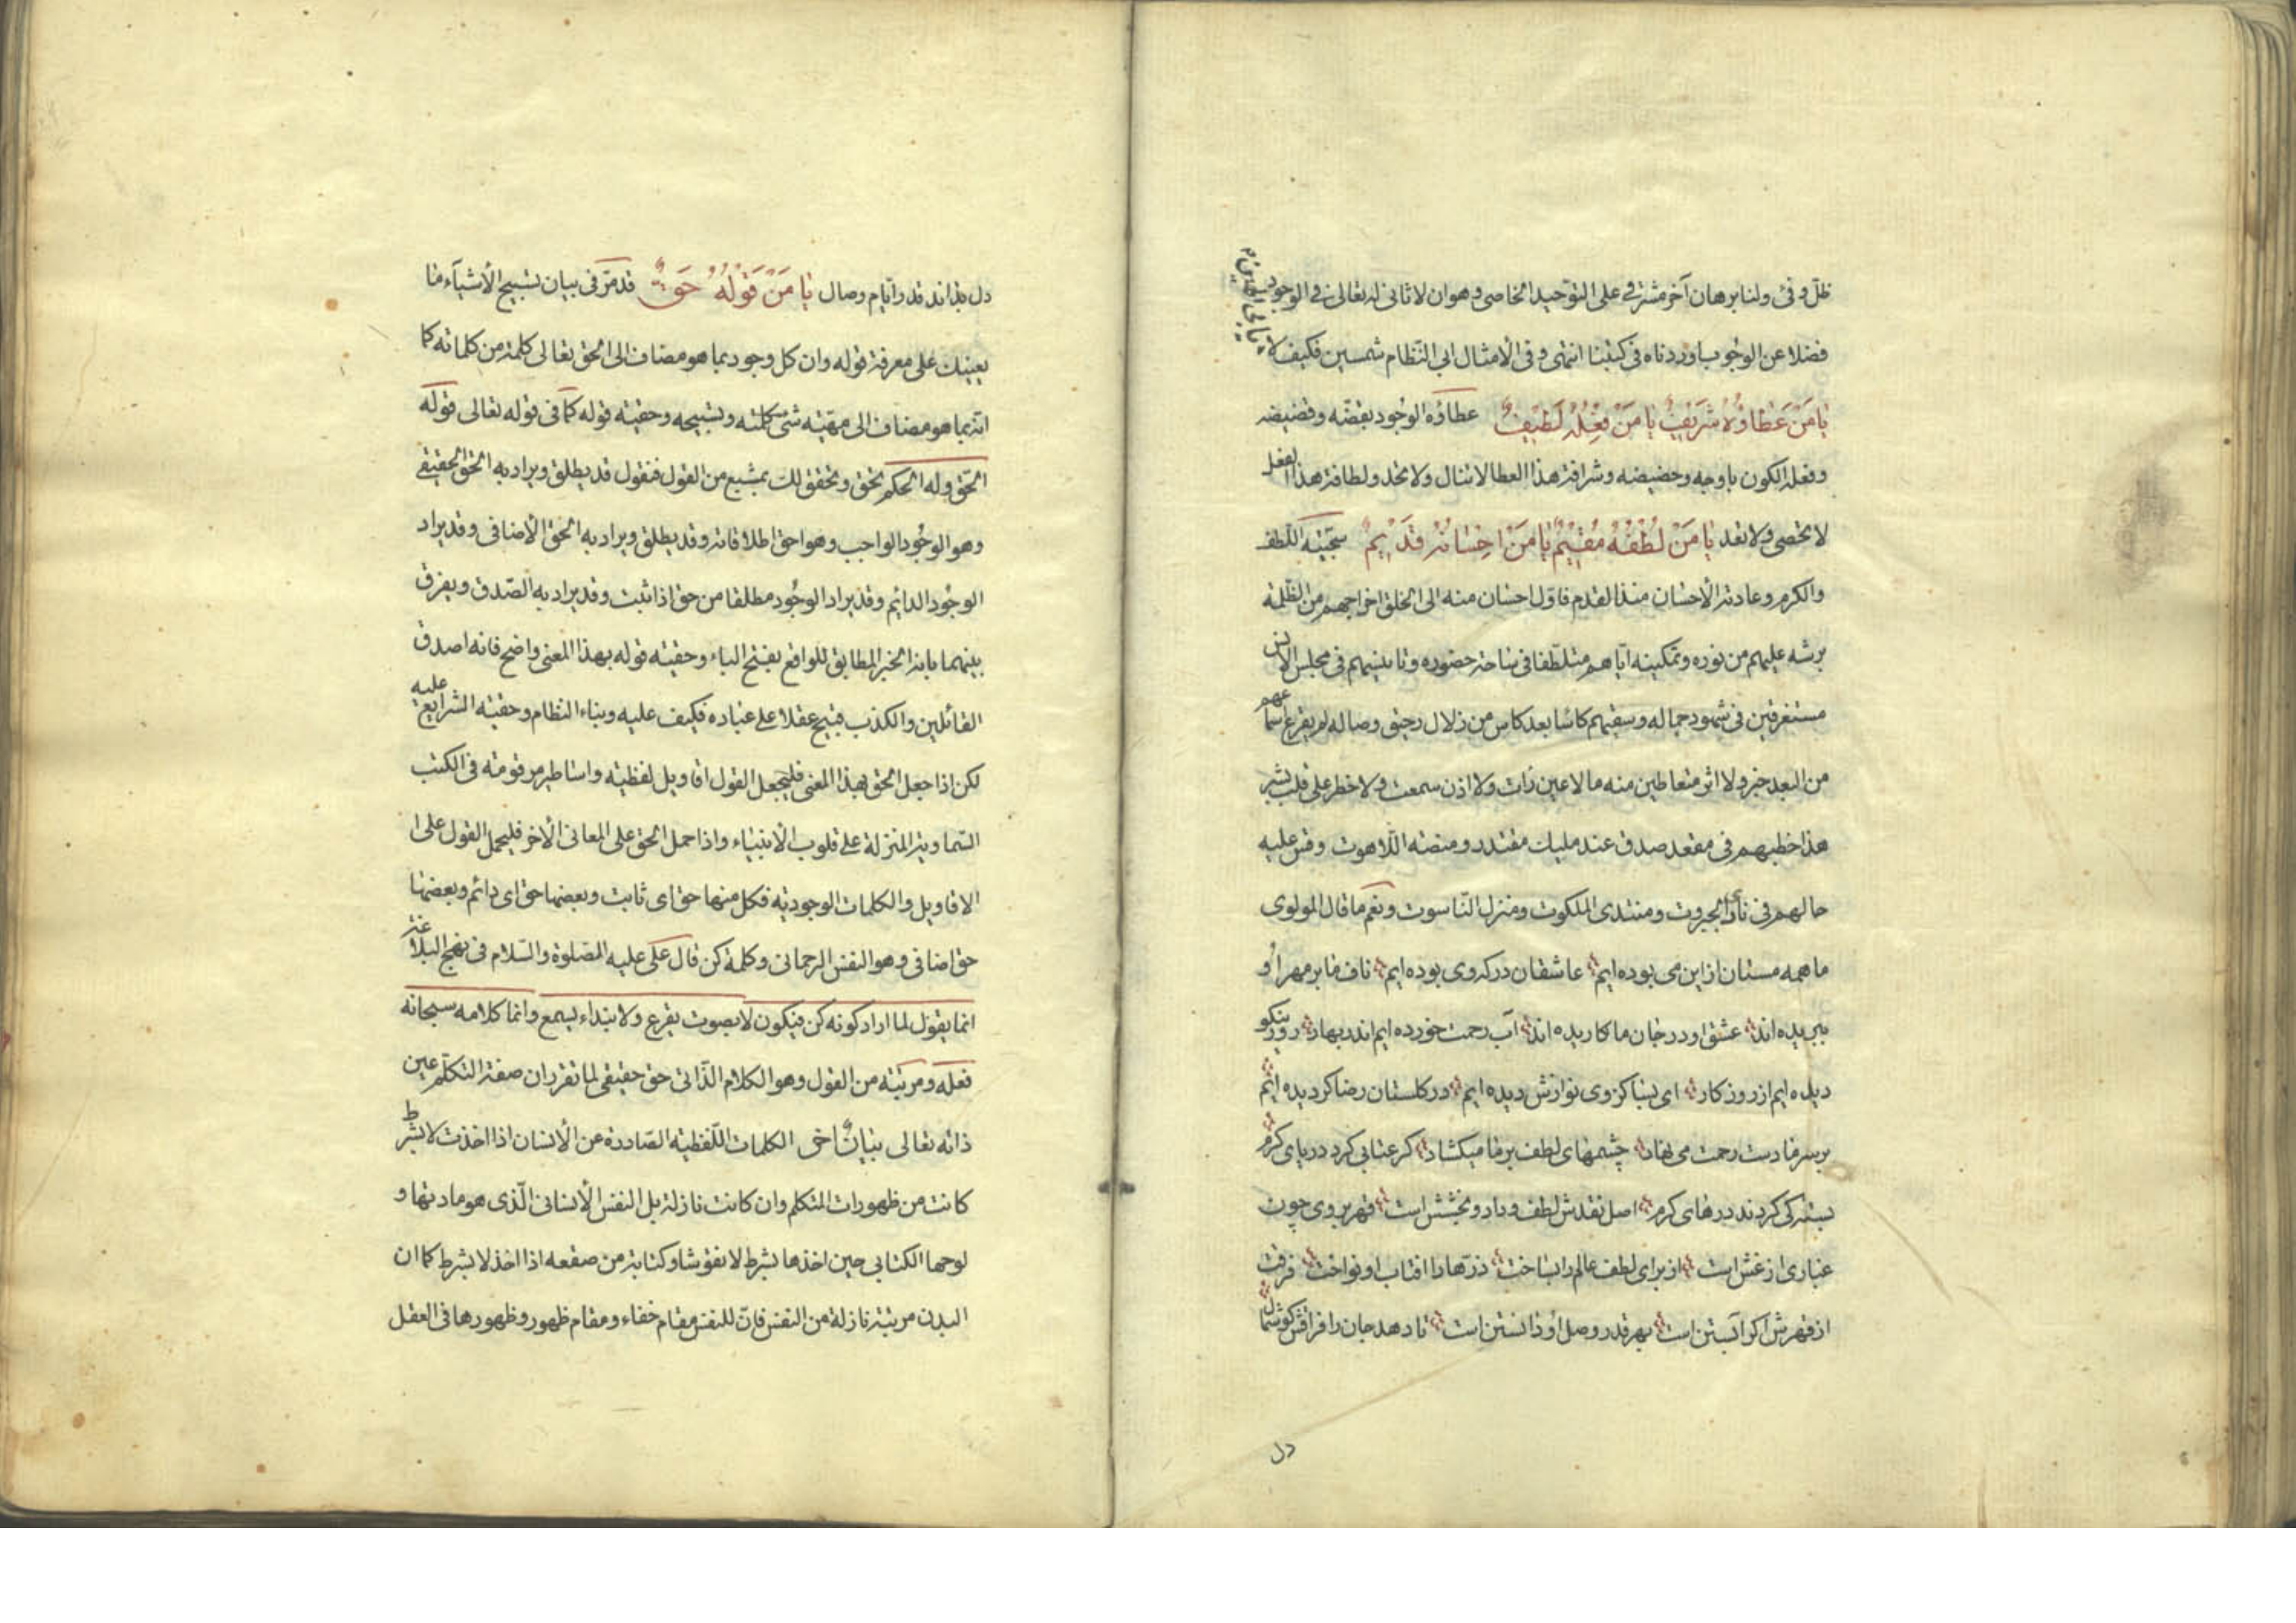 ظل وفئ ولنا برهان آخر مشرقي على التوحيد الخاصى وهو ان لا ثانى له تعالى فى الوجود
فضلا عن الوجوب اوردناه فى كتبنا انتهى وفى الأمثال ابى النظام شمسين فكيف لا
يا مَنْ عَطاؤُهُ شَرَيفٌ يا مَنْ فِعْلُهُ لَطيفٌ عطاؤه الوجود بقضّه وقضيضه
وفعله الكون باوجه وحضيضه وشرافة هذا العطا لا تنال ولا تحد ولطافة هذا الفعل
لا تحصى ولا تعد يا مَنْ لُطْفُهُ مُقيمٌ يا مَنْ اِحْسانُهُ قَديمٌ سجيّته اللطف
والكرم وعادته الأحسان منذ القدم فاول احسان منه الى الخلق اخراجهم من الظلمة
برشه عليهم من نوره وتمكينه اياهم متلطّفا فى ساحة حضوره وتانيسهم فى مجلس الانس
مستغرقين فى شهود جماله وسقيهم كاسا بعد كاس من زلال رحيق وصاله لم يقرع اسماعهم
من البعد خبر ولا اثر متعاطين منه ما لا عين رات ولا اذن سمعت ولا خطر على قلب بشر
هذا خطبهم فى مقعد صدق عند مليك مقتدر ومنصّه اللاهوت وقس عليه
حالهم فى نادى الجبروت ومنتدى الملكوت ومنزل الناسوت ونعم ما قال المولوى
ما همه مستان از اين مى بوده ايم عاشقان دركه وى بوده ايم ناف ما بر مهر او
ببريده اند عشق او در جان ما كاريده اند آب رحمت خورده ايم اندر بهار روز نيكو
ديده ايم از روزكار اى بسا كز وى نوازش ديده ايم در كلستان رضا كرديده ايم
بر سر ما دست رحمت مى نهاد چشمهاى لطف بر ما ميكشاد كر عتابى كرد درياى كرم
بسته كى كردند درهاى كرم اصل نقدش لطف و داد و بخشش است قهر بروى چون
غبارى از غش است از براى لطف عالم را بساخت ذرّها را افتاب او نواخت فرقت
از قهرش اكر آبستن است بهر قدر وصل او دانستن است تا دهد جان را فراقش كوشمال
دل
دل بداند قدر ايام وصال يا مَنْ قَوْلُهُ حَقٌّ قد مرّ فى بيان تسبيح الأشيآء ما
يعينك على معرفة قوله وان كل وجود بما هو مضاف الى الحق تعالى كلمة من كلماته كما
انه بما هو مضاف الى مهيّته شئ كلمته وتسبيحه وحقيّته قوله كما فى قوله تعالى قوله
الحق وله الحكم تحق وتحقق لك بمشبع من القول فنقول قد يطلق ويراد به الحق الحقيقى
وهو الوجود الواجب وهو احق اطلاقاته وقد يطلق ويراد به الحق الأضافى وقد يراد
الوجود الدايم وقد يراد الوجود مطلقا من حق اذا ثبت وقد يراد به الصّدق ويفرق
بينهما بانه الخبر المطابق للواقع بفتح الباء وحقيّته قوله بهذا المعنى واضح فانه اصدق
القائلين والكذب قبيح عقلا على عباده فكيف عليه وبناء النظام وحقيّه الشرايع عليه
لكن اذا جعل الحق بهذا المعنى فليجعل القول اقاويل لفظيّه واساطير مرقومة فى الكتب
السّماوية المنزلة على قلوب الأنبياء واذا حمل الحق على المعانى الأخر فليحمل القول على ا
الاقاويل والكلمات الوجوديّه فكل منها حق اى ثابت وبعضها حق اى دائم وبعضها
حق اضافى وهو النفس الرحمانى وكلمة كن قال على عليه الصلوة والسّلام فى نهج البلاغة
انما يقول لما اراد كونه كن فيكون لا بصوت يقرع ولا بنداء يسمع وانما كلامه سبحانه
فعله ومرتبته من القول وهو الكلام الذّاتى حق حقيقى لما تقرر ان صفة التكلّم عين
ذاته تعالى بيانٌ اخى الكلمات اللّفظيّه الصّادرة عن الأنسان اذا اخذت لا بشرط
كانت من ظهورات المتكلم وان كانت نازلة بل النفس الأنسانى الّذى هو مادتها و
لوحها الكتابى حين اخذها بشرط لا نقوشا وكتابة من صقعه اذا اخذ لا بشرط كما ان
البدن مرتبة نازلة من النفس فانّ للنفس مقام خفاء ومقام ظهور وظهورها فى العقل